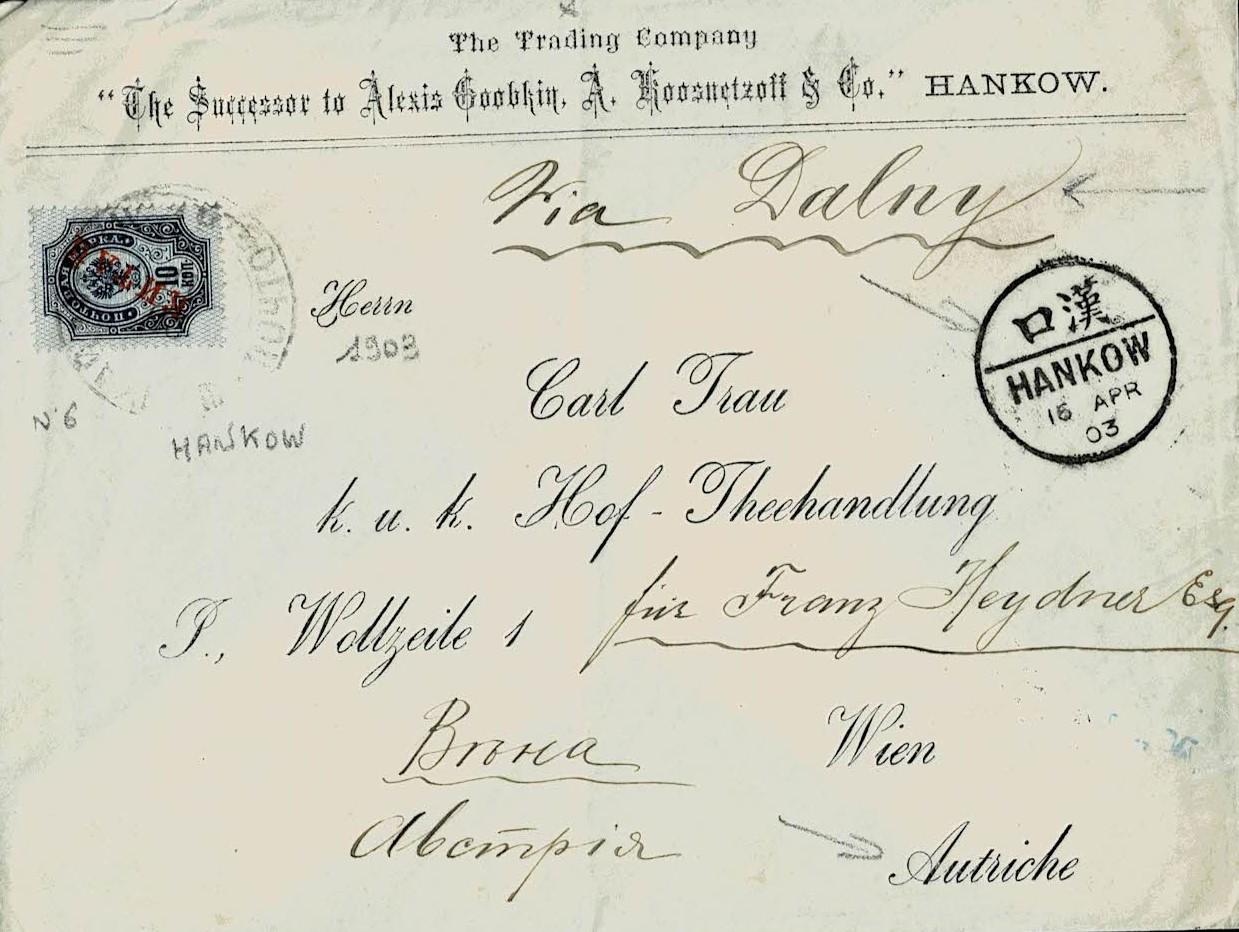 The Trading Company
"The Successor to Alexis Goobkin, A. Koosnetzoff & Co." HANKOW.
Via Dalny
ПОЧТОВАЯ МАРКА.
10
КОП
КИТАЙ
漢口
HANKOW
16 APR
03
Herrn
1903
Carl Trau
N 6
HANKOW
k. u. k. Hof - Theehandlung
für Franz Heydner Esq.
I., Wollzeile 1
Вѣна
Wien
Австрія
Autriche